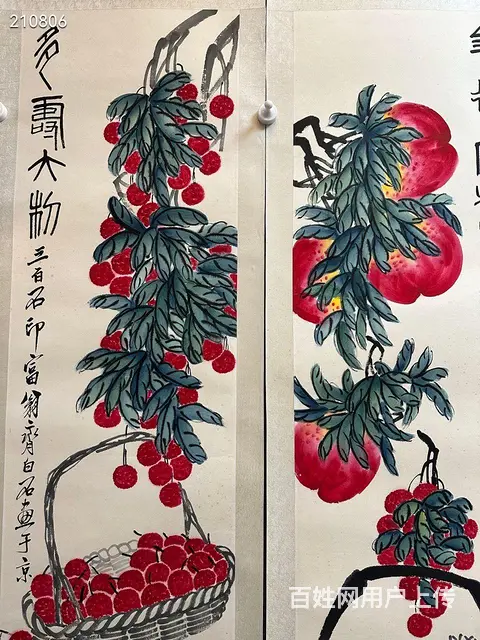 210806
多壽大利
三百石印富翁齊白石畫于京
百姓网用户上传